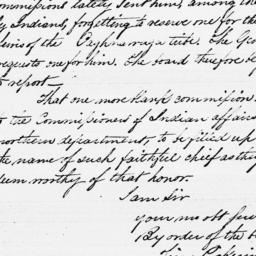 ommissions lately sent him, among the
ly Indians, forgetting to reserve one for th
of the tribe. The
requests one for him. The board therefore be
report—
That one more blank commission
to the Commissioners of Indian affairs
northern department, to be filled up
the name of such faithful chief as they
deem worthy of that honor.
I am Sir
your mo obt ser
By order of the b